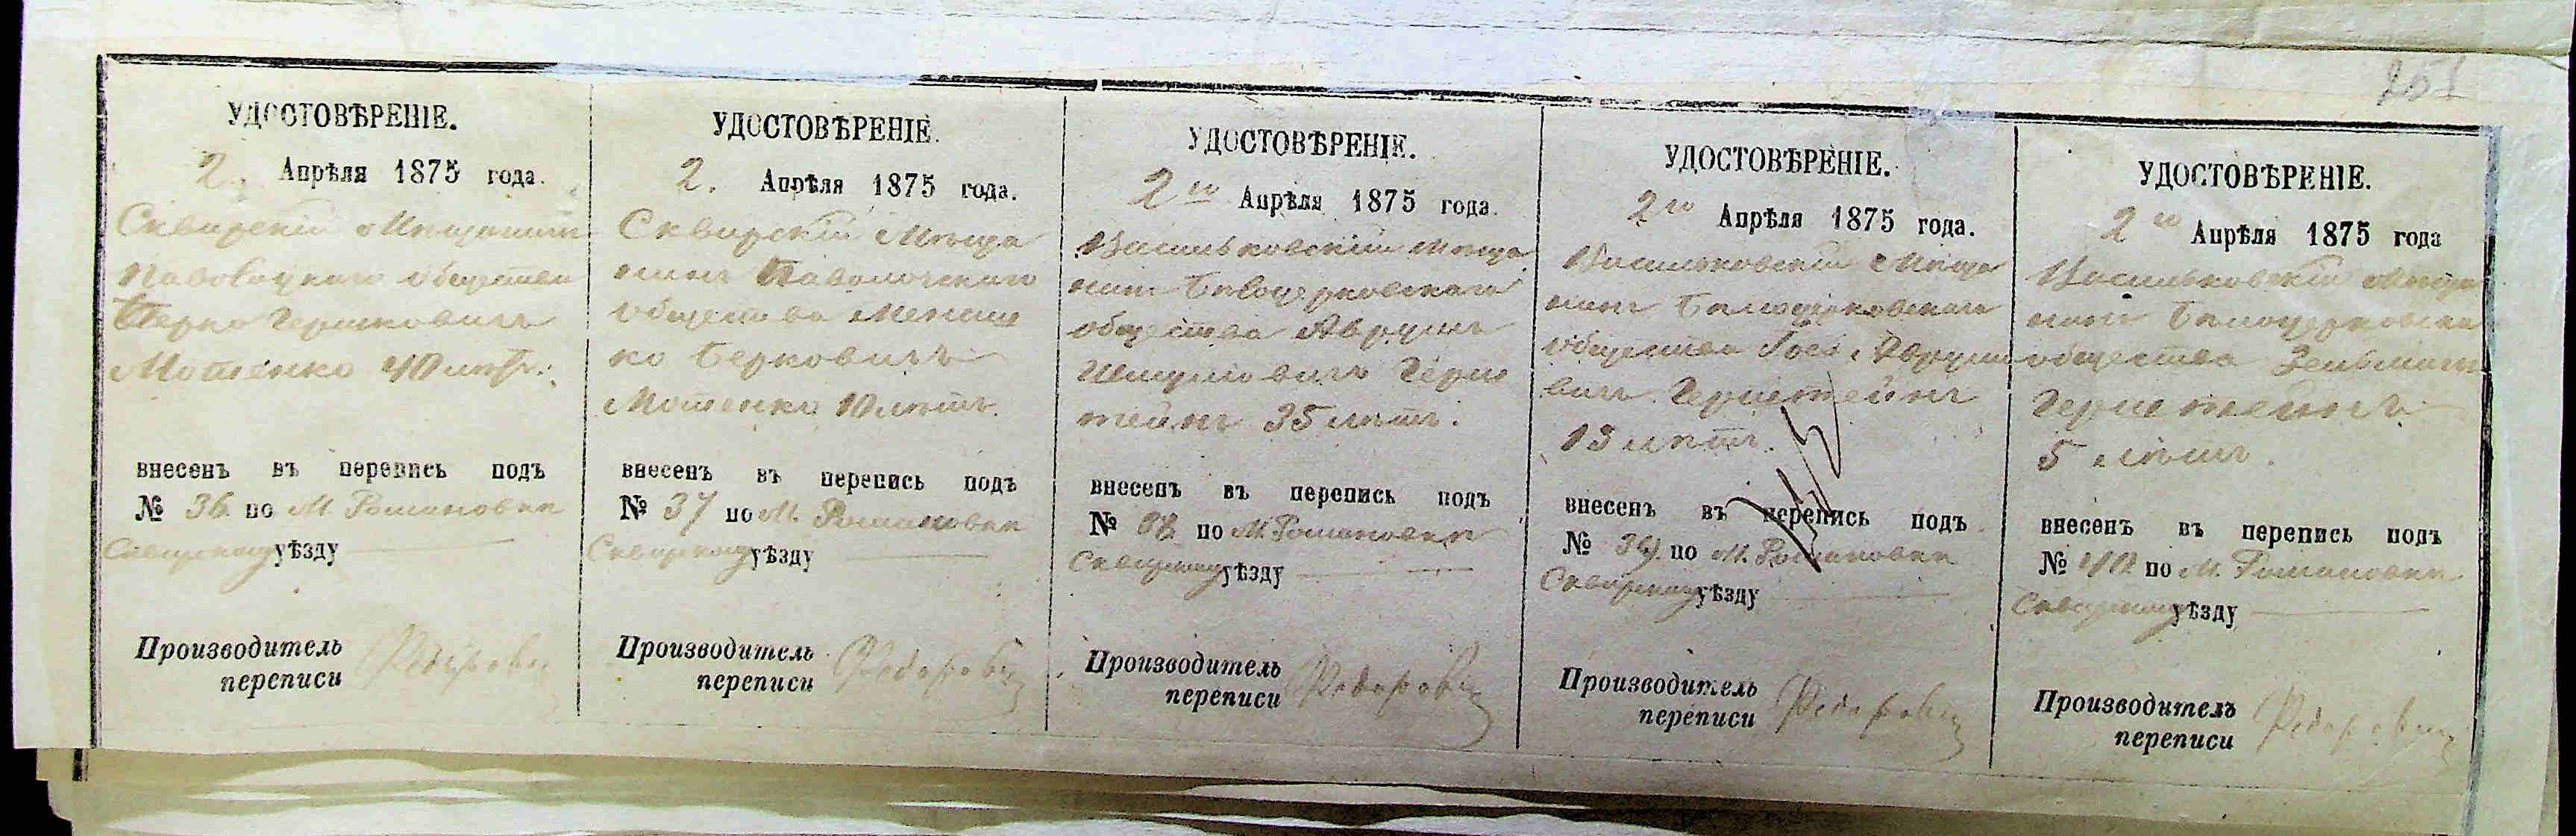 251
УДОСТОВѢРЕНІЕ.
2. Апрѣля 1875 года.
Сквирскій Мѣщанинъ
Паволоцкаго общества
Берко Гершковичъ
Мотенко 40 лѣтъ.
внесенъ въ перепись подъ
№ 36 по М. Романовкѣ
Сквирскому уѣзду
Производитель
переписи
УДОСТОВѢРЕНІЕ.
2. Апрѣля 1875 года.
Сквирскій Мѣща
нинъ Паволочскаго
общества
ко Берковичъ
Мотенко 10 лѣтъ.
внесенъ въ перепись подъ
№ 37 по М. Романовкѣ
Сквирскому уѣзду
Производитель
переписи
УДОСТОВѢРЕНІЕ.
2го Апрѣля 1875 года.
Васильковскій Мѣща
нинъ Бѣлоцерковскаго
общества Аврумъ
Шмулiовичъ Герш
тейнъ 35 лѣтъ.
внесенъ въ перепись подъ
№ 38 по М. Романовкѣ
Сквирскому уѣзду
Производитель
переписи
УДОСТОВѢРЕНІЕ.
2го Апрѣля 1875 года.
Васильковскій Мѣща
нинъ Бѣлоцерковскаго
общества Аврумо
вичъ Герштейнъ
13 лѣтъ.
внесенъ въ перепись подъ
№ 39. по М. Романовкѣ
Сквирскому уѣзду
Производитель
переписи
УДОСТОВѢРЕНІЕ.
2го Апрѣля 1875 года
Васильковскій Мѣща
нинъ Бѣлоцерковска
общества Зельманъ
Герштейнъ
5 лѣтъ.
внесенъ въ перепись подъ
№ 40. по М. Романовкѣ
Сквирскому уѣзду
Производитель
переписи